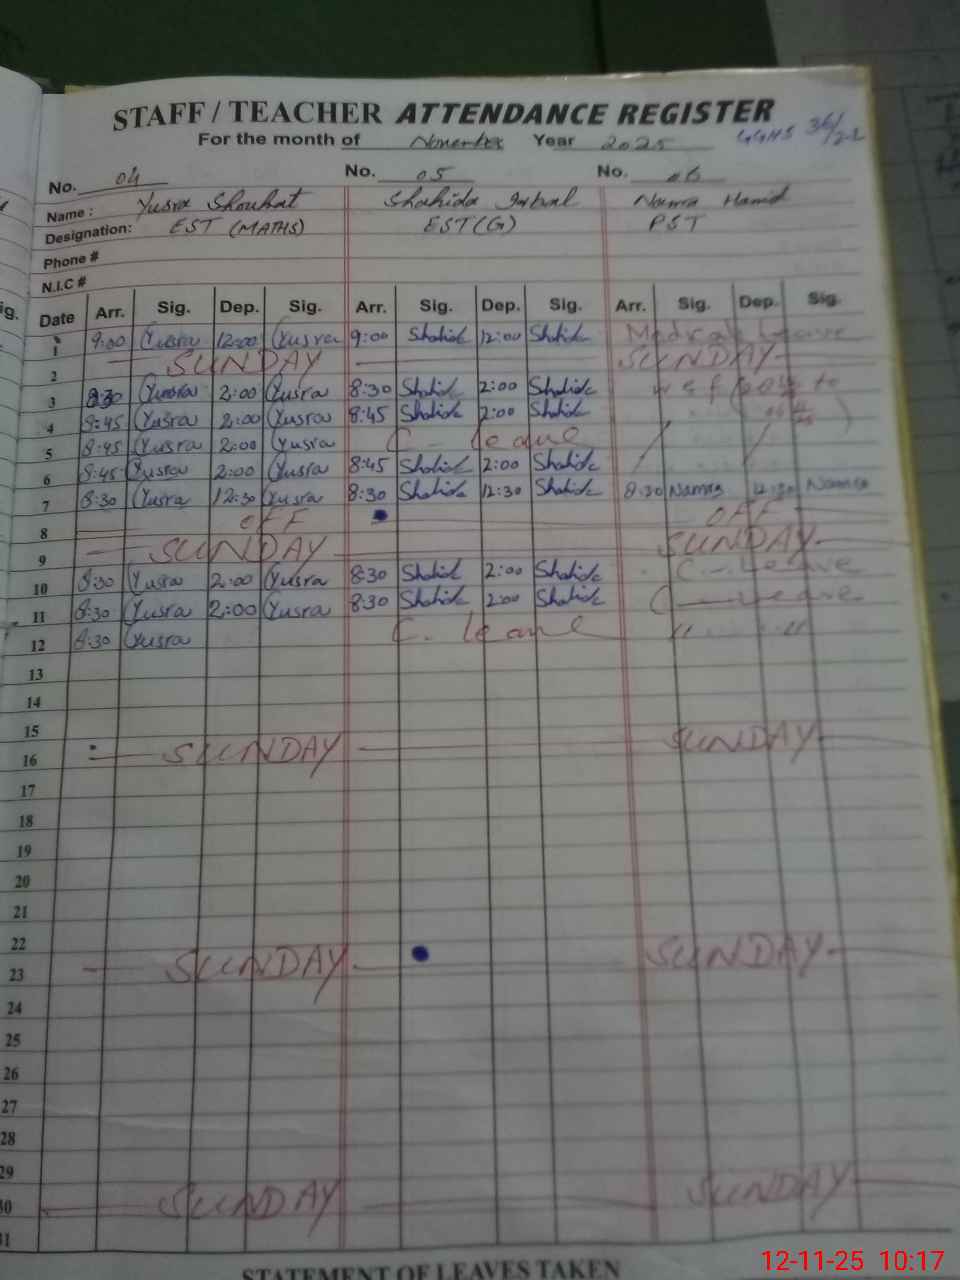 STAFF / TEACHER ATTENDANCE REGISTER
For the month of November Year 2025 GGHS 36/2-L
No. 04 No. 05 No. 06
Name : Yusra Shoukat Shahida Iqbal Namra Hamid
Designation: EST (MATHS) EST (G) PST
Phone #
N.I.C #
Date Arr. Sig. Dep. Sig. Arr. Sig. Dep. Sig. Arr. Sig. Dep. Sig.
1 9:00 Yusra 12:00 Yusra 9:00 Shahida 12:00 Shahida Medical Leave
2 SUNDAY SUNDAY
3 8:30 Yusra 2:00 Yusra 8:30 Shahida 2:00 Shahida w e f to
4 8:45 Yusra 2:00 Yusra 8:45 Shahida 2:00 Shahida
5 8:45 Yusra 2:00 Yusra C. leave
6 8:45 Yusra 2:00 Yusra 8:45 Shahida 2:00 Shahida
7 8:30 Yusra 12:30 Yusra 8:30 Shahida 12:30 Shahida 8:30 Namra 12:30 Namra
8 OFF OFF
9 SUNDAY SUNDAY
10 8:30 Yusra 2:00 Yusra 8:30 Shahida 2:00 Shahida C. Leave
11 8:30 Yusra 2:00 Yusra 8:30 Shahida 2:00 Shahida C. Leave
12 8:30 Yusra C. leave " "
13
14
15
16 SUNDAY SUNDAY
17
18
19
20
21
22
23 SUNDAY SUNDAY
24
25
26
27
28
29
30 SUNDAY SUNDAY
31
STATEMENT OF LEAVES TAKEN
12-11-25 10:17